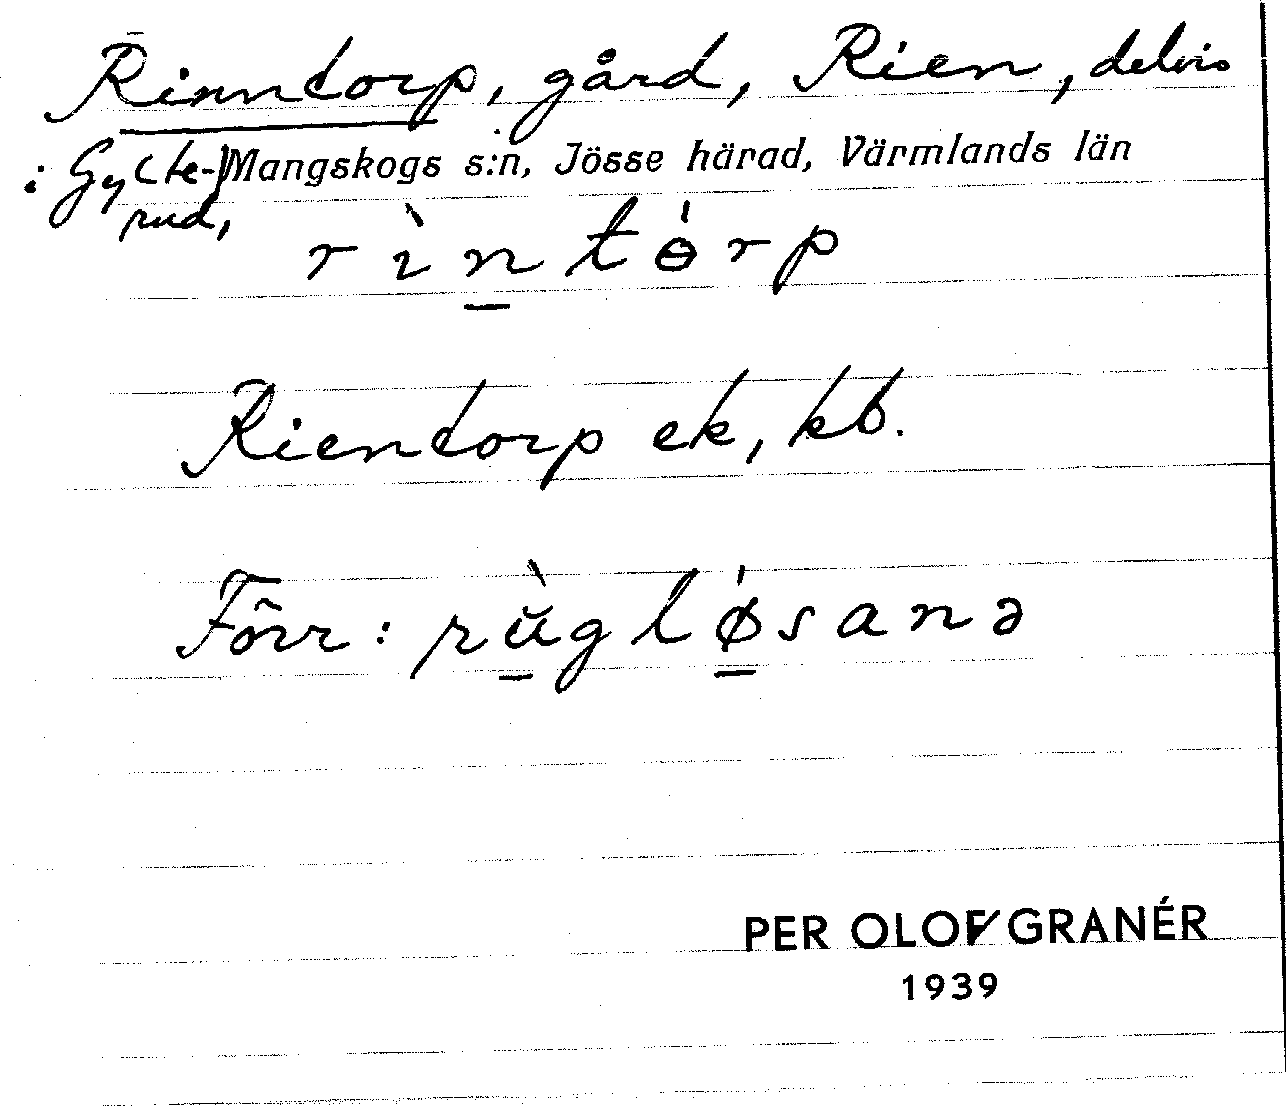 Rinntorp, gård, Rien, delvis
i Gylte-rud, Mangskogs s:n, Jösse härad, Värmlands län
rìntɵ́rp
Rientorp ek, kb.
Förr: rùglǿsanə
PER OLOF GRANÉR
1939